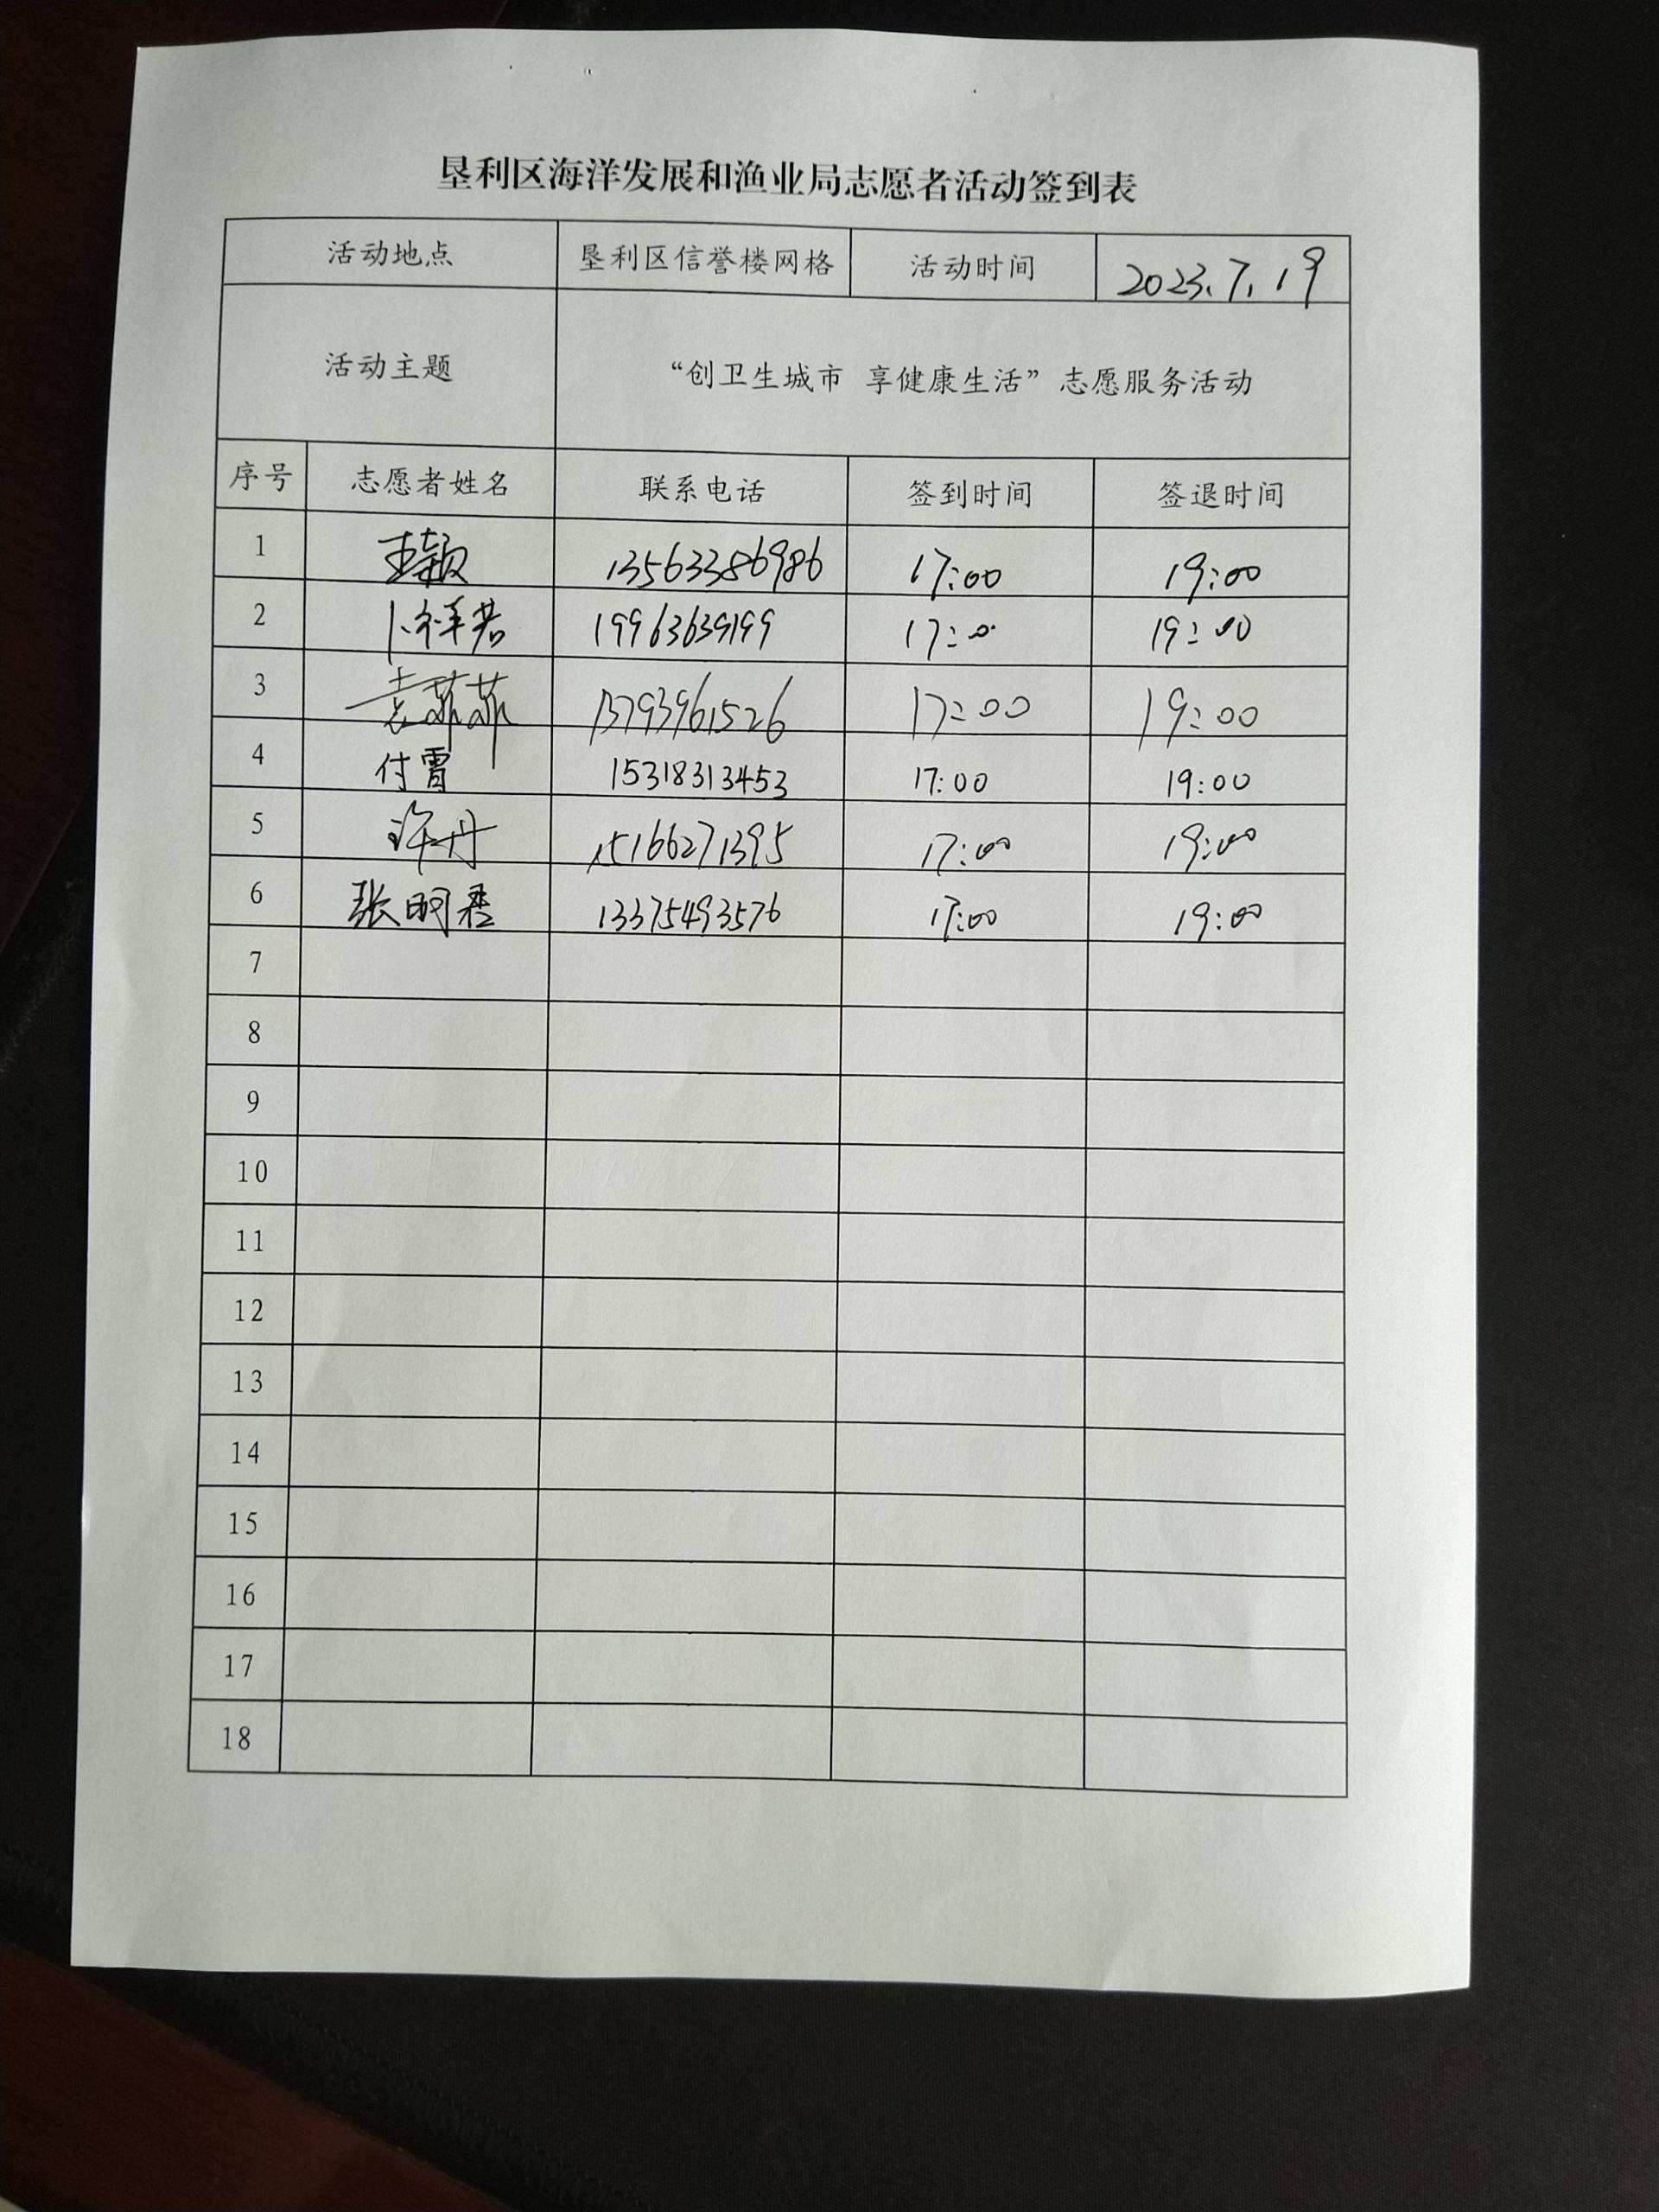 垦利区海洋发展和渔业局志愿者活动签到表
活动地点 垦利区信誉楼网格 活动时间 2023.7.19
活动主题 “创卫生城市 享健康生活”志愿服务活动
序号 志愿者姓名 联系电话 签到时间 签退时间
1 王颖 13563386986 17:00 19:00
2 卜祥君 19963639199 17:00 19:00
3 袁菲菲 13793961526 17:00 19:00
4 付霄 15318313453 17:00 19:00
5 许丹 15166271395 17:00 19:00
6 张明 13375493576 17:00 19:00
7
8
9
10
11
12
13
14
15
16
17
18